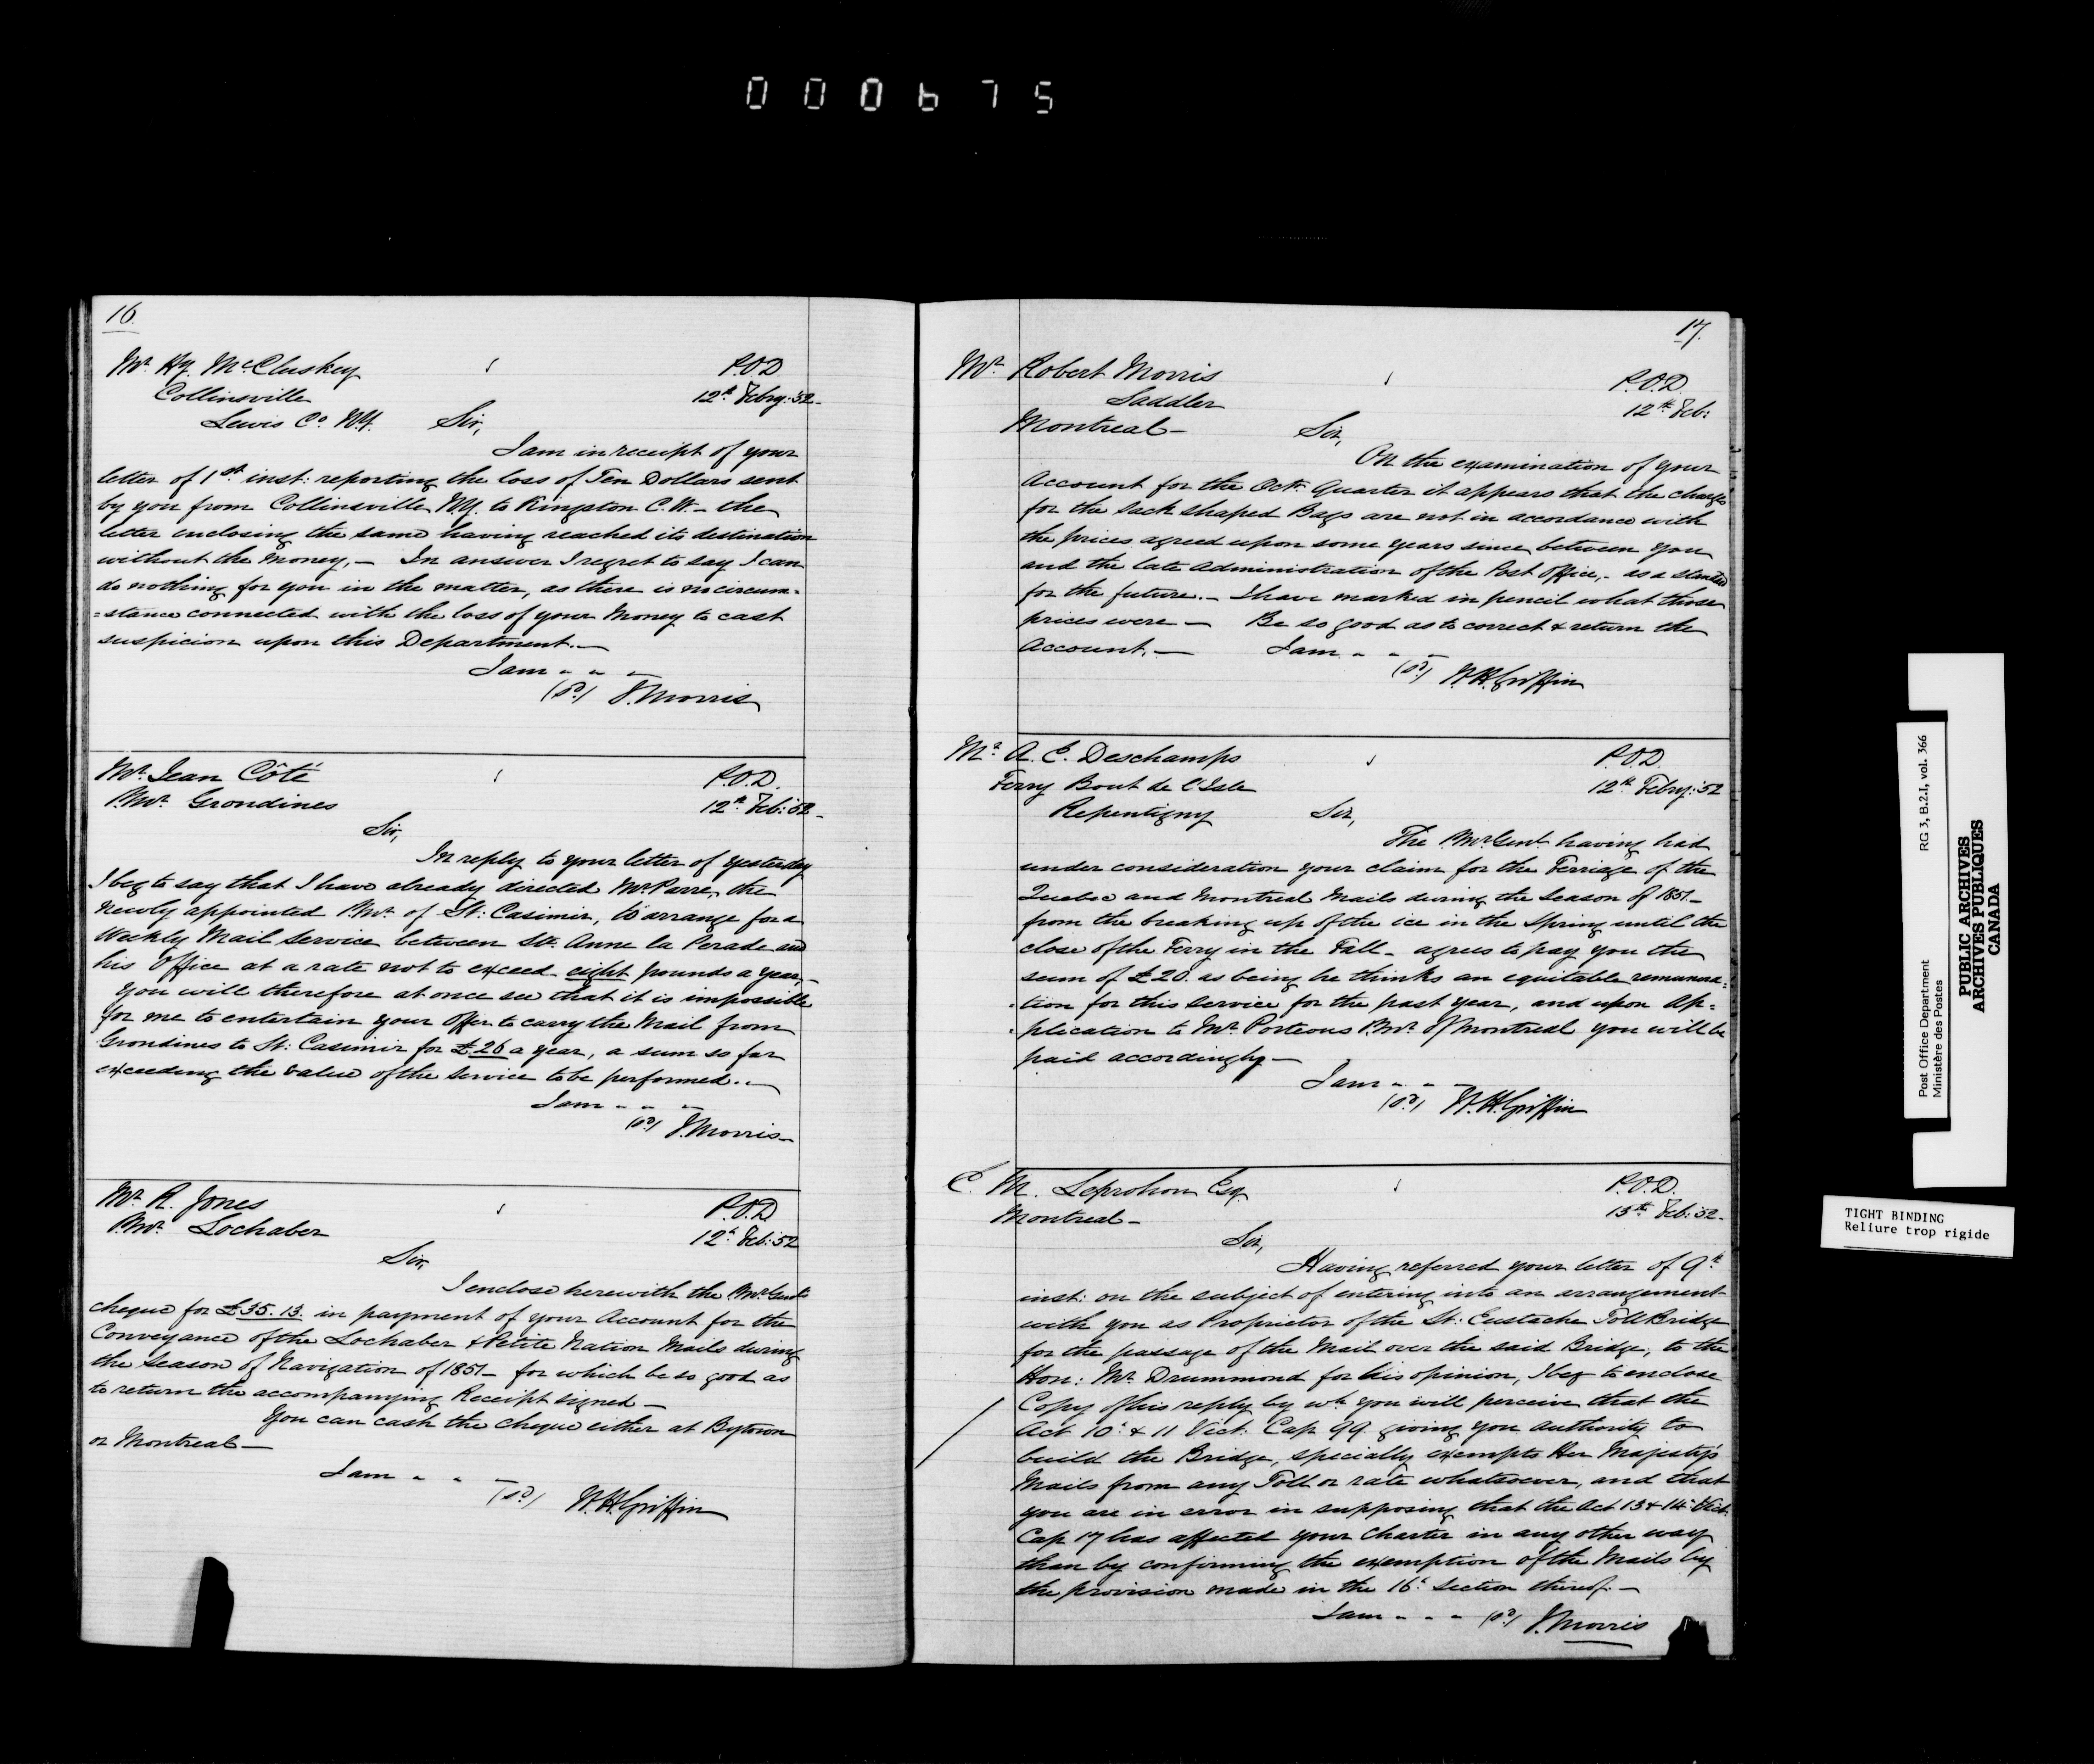 000675
16.
Mr. Hy. McCluskey
P.O.D
Collinsville
12th Febry: 52-
Lewis Co. N.Y.
Sir,
I am in receipt of your
letter of 1st. inst: reporting the loss of Ten Dollars sent
by you from Collinsville N.Y. to Kingston C.W. - the
letter enclosing the same having reached its destination
without the money, - In answer I regret to say I can
do nothing for you in the matter, as there is no circum=
=stance connected with the loss of your Money to cast
suspicion upon this Department. -
I am " " -
(sd.) J. Morris
Mr. Jean Côté
P.O.D.
P.Mr. Grondines
12th Feb: 52-
Sir,
In reply to your letter of yesterday
I beg to say that I have already directed Mr. Parre, the
newly appointed P.Mr. of St: Casimir, to arrange for a
Weekly Mail Service between Ste. Anne la Perade and
his Office at a rate not to exceed eight pounds a year, -
You will therefore at once see that it is impossible
for me to entertain your Offer to carry the Mail from
Grondines to St: Casimir for £26 a year, a sum so far
exceeding the value of the service to be performed. -
I am " " -
(sd) J. Morris -
Mr. R. Jones
P.O.D
P.Mr. Lochaber
12th Feb: 52
Sir,
I enclose herewith the P.Mr. Genl's
cheque for £35.13. in payment of your Account for the
Conveyance of the Lochaber & Petite Nation Mails during
the Season of Navigation of 1851 - for which be so good as
to return the accompanying Receipt signed -
You can cash the cheque either at Bytown
or Montreal -
I am " " -
(sd) W.H. Griffin
17.
Mr. Robert Morris
P.O.D.
Saddler
12th Feb:
Montreal -
Sir,
On the examination of your
Account for the Octr. Quarter it appears that the charges
for the Sack shaped Bags are not in accordance with
the prices agreed upon some years since between you
and the late administration of the Post Office, - as a standard
for the future. - I have marked in pencil what those
prices were - Be so good as to correct & return the
Account. - I am " " -
(sd) W.H. Griffin
Mr. A. E. Deschamps
P.O.D.
Ferry Bout de l'Isle
12th Febry: 52
Repentigny
Sir,
The P.Mr. Genl. having had
under consideration your claim for the Ferriage of the
Quebec and Montreal Mails during the Season of 1851 -
from the breaking up of the ice in the Spring until the
close of the Ferry in the Fall - agrees to pay you the
sum of £20. as being he thinks an equitable remunera=
=tion for this service for the past year, and upon ap=
=plication to Mr. Porteous P.Mr. of Montreal you will be
paid accordingly -
I am " " -
(sd) W.H. Griffin
C. M. Leprohon Esq.
P.O.D.
Montreal -
13th Feb: 52 -
Sir,
Having referred your letter of 9th
inst: on the subject of entering into an arrangement
with you as Proprietor of the St: Eustache Toll Bridge
for the passage of the Mail over the said Bridge, to the
Hon: Mr. Drummond for his opinion, I beg to enclose
Copy of his reply by wh. you will perceive that the
Act 10th & 11 Vict: Cap 99 giving you authority to
build the Bridge, specially exempts Her Majesty's
Mails from any Toll or rate whatsoever, and that
you are in error in supposing that the Act 13 & 14th Vict:
Cap 17 has affected your Charter in any other way
than by confirming the exemption of the Mails by
the provision made in the 16th Section thereof. -
I am " " " (sd) J. Morris
Post Office Department RG 3, B.2.I, vol. 366
Ministère des Postes
PUBLIC ARCHIVES
ARCHIVES PUBLIQUES
CANADA
TIGHT BINDING
Reliure trop rigide